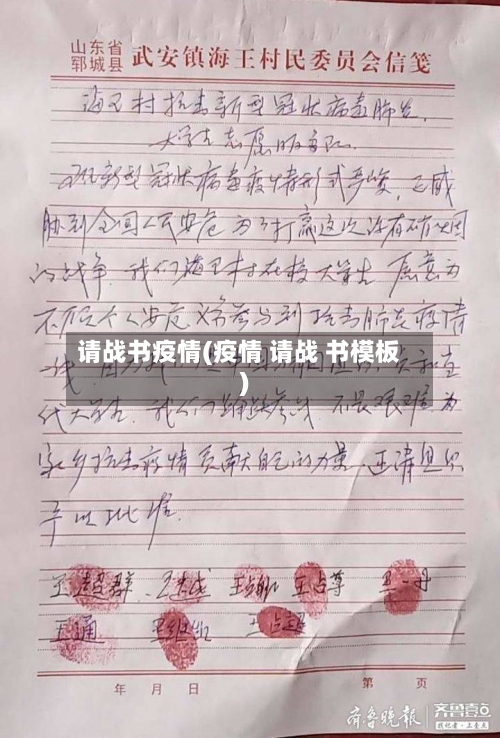 山东省
郓城县 武安镇海王村民委员会信笺
海王村抗击新型冠状病毒肺炎,
大学生志愿服务队.
现新型冠状病毒疫情形式严峻,已威
胁到全国人民安危 为了打赢这次没有硝烟
的战争.我们海王村在校大学生 愿意为
不顾个人安危 义务参与到 抗击肺炎疫情
请战书疫情(疫情 请战 书模板
)
代大学生.我们 不畏艰难 为
家乡抗击疫情 贡献自己的力量.还请组织
予以批准.
王超群 王占尊 王一丹
王通
年 月 日 第 页
齐鲁晚报 齐鲁壹点